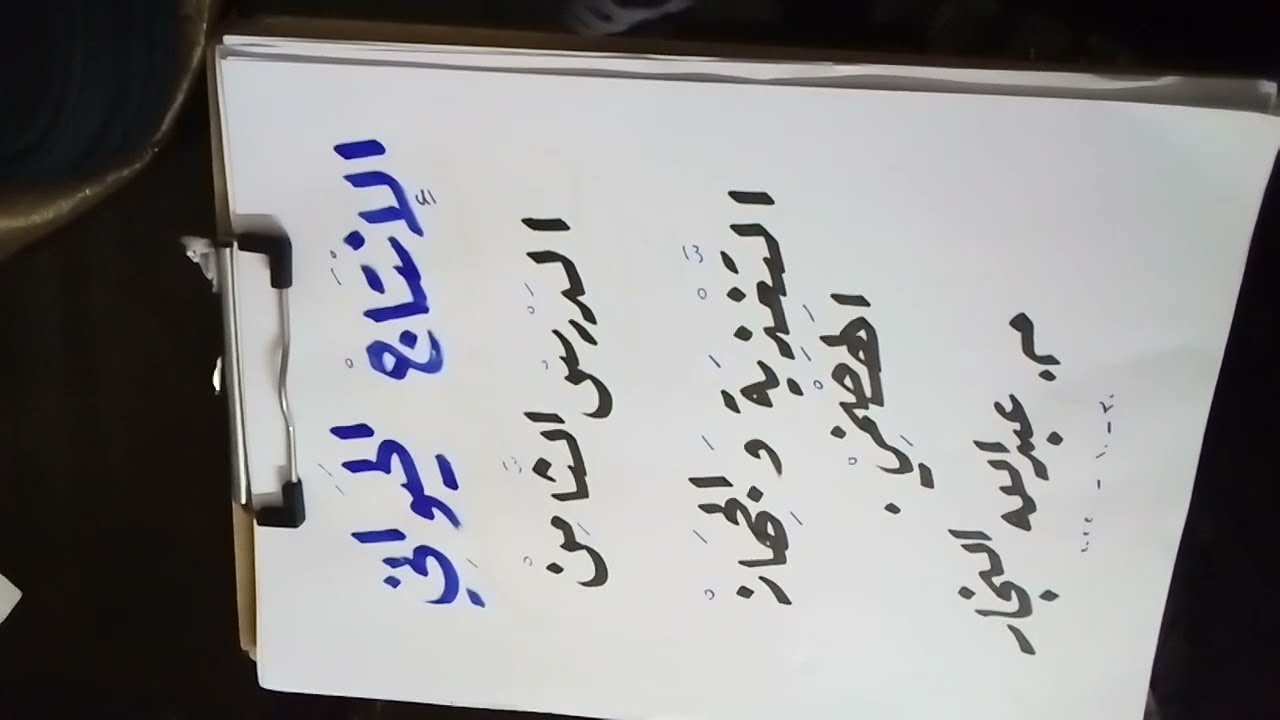 الإِنْتَاجْ الحَيَوَانِي
الدَرْسْ الثَّامِنْ
التَّغْذِيَة وَ الجِهَازْ
الهَضْمِيْ .
م. عبدالله النجار